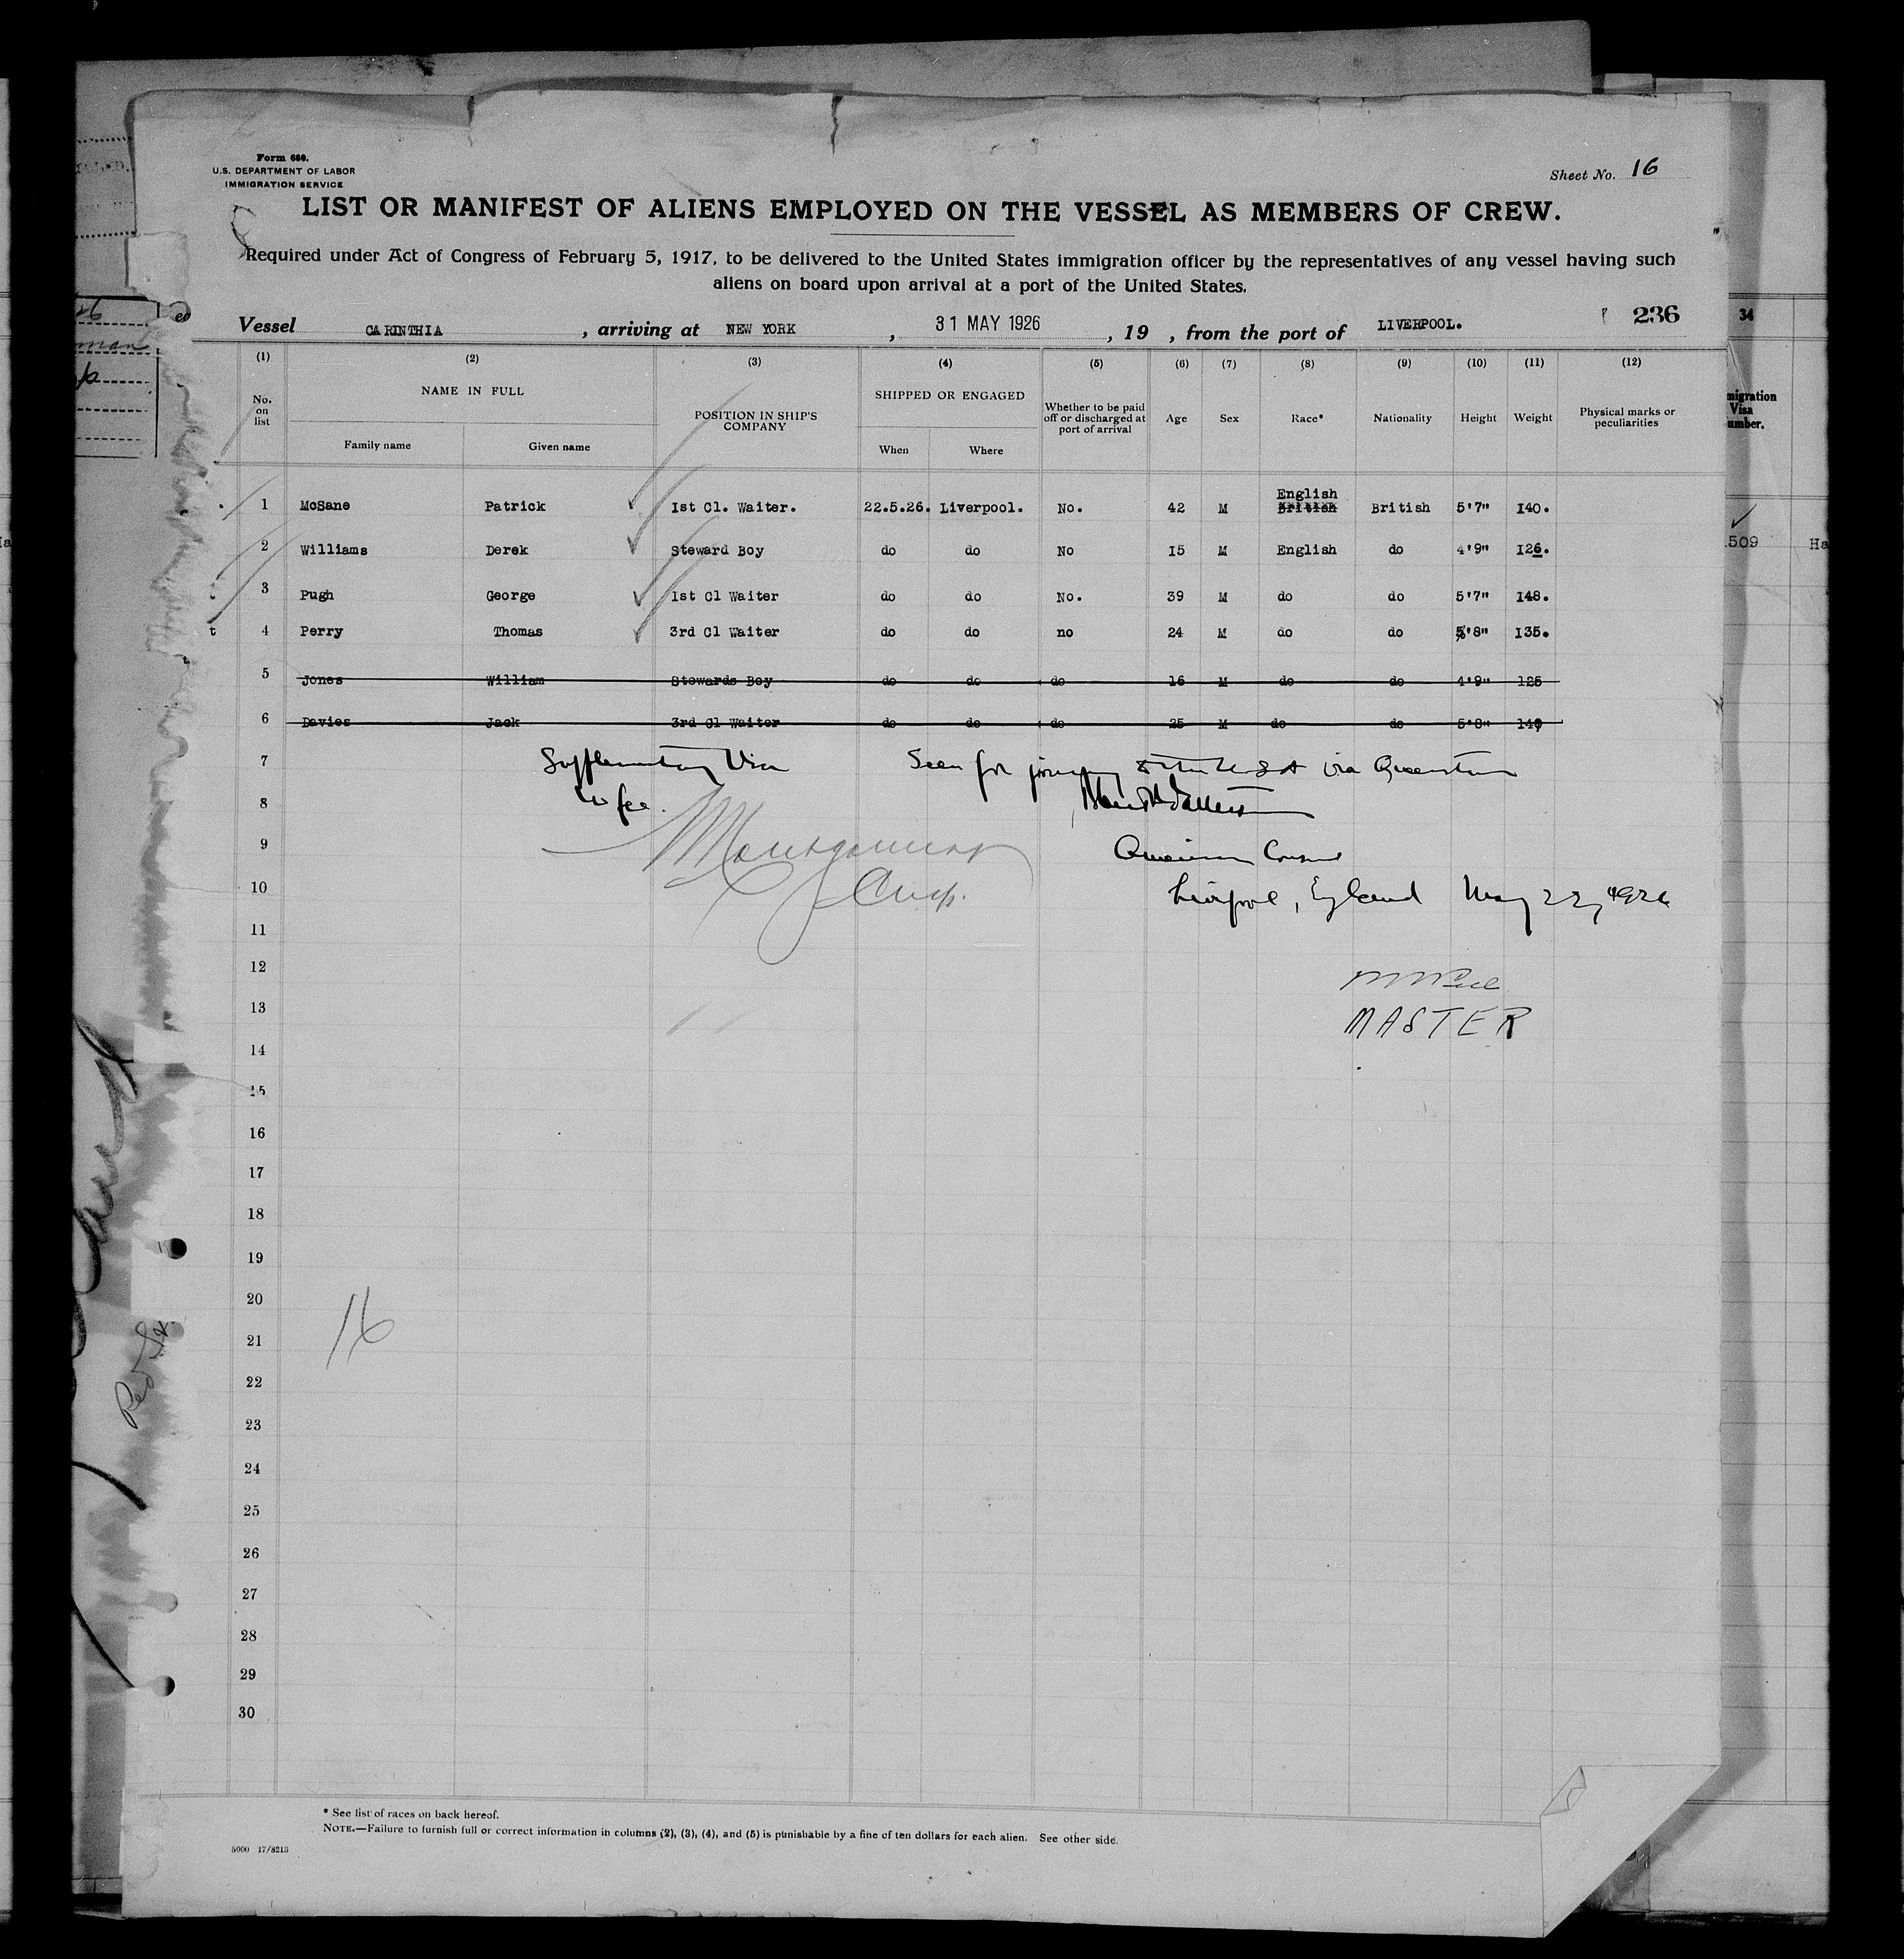 Form 680.
U.S. DEPARTMENT OF LABOR
IMMIGRATION SERVICE
Sheet No. 16
LIST OR MANIFEST OF ALIENS EMPLOYED ON THE VESSEL AS MEMBERS OF CREW.
Required under Act of Congress of February 5, 1917, to be delivered to the United States immigration officer by the representatives of any vessel having such
aliens on board upon arrival at a port of the United States.
Vessel CARINTHIA , arriving at NEW YORK , 31 MAY 1926 , 19 , from the port of LIVERPOOL. 236
(1) (2) (3) (4) (5) (6) (7) (8) (9) (10) (11) (12)
No. on list NAME IN FULL Family name Given name POSITION IN SHIP'S COMPANY SHIPPED OR ENGAGED When Where Whether to be paid off or discharged at port of arrival Age Sex Race* Nationality Height Weight Physical marks or peculiarities
English
1 McSane Patrick 1st Cl. Waiter. 22.5.26. Liverpool. No. 42 M British British 5'7" 140.
2 Williams Derek Steward Boy do do No 15 M English do 4'9" 126.
3 Pugh George 1st Cl Waiter do do No. 39 M do do 5'7" 148.
4 Perry Thomas 3rd Cl Waiter do do no 24 M do do 5'8" 135.
5 Jones William Stewards Boy do do do 16 M do do 4'9" 125
6 Davies Jack 3rd Cl Waiter do do do 25 M do do 5'8" 140
7 Supplementary Visa Seen for journey to the U S A via Queenstown
8 No fee.
9 Montgomery American Consul
10 Liverpool, England May 22, 1926
11
12
13 MASTER
14
15
16
17
18
19
20
16
21
22
23
24
25
26
27
28
29
30
* See list of races on back hereof.
NOTE.—Failure to furnish full or correct information in columns (2), (3), (4), and (5) is punishable by a fine of ten dollars for each alien. See other side.
5000 17/8213
34
migration
Visa
umber.
509 Ha